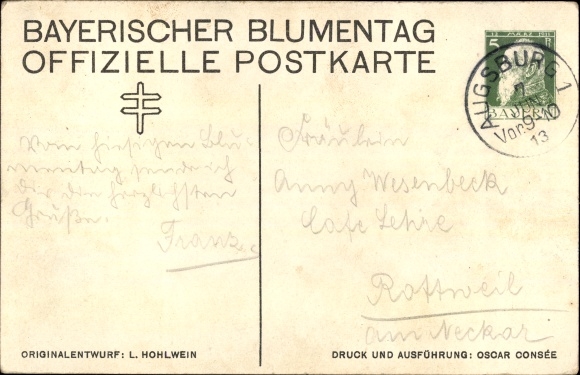 BAYERISCHER BLUMENTAG
OFFIZIELLE POSTKARTE
12 MÄRZ 1911
5 P
BAYERN
AUGSBURG 1
7
JUN.
Vor.9-10
13
Vom hiesigen Blu-
mentag sende ich
Dir die herzlichsten
Grüße.
Franz
Fräulein
Anny Wesenbeck
Cafe Lehre
Rottweil
am Neckar
ORIGINALENTWURF: L. HOHLWEIN
DRUCK UND AUSFÜHRUNG: OSCAR CONSÉE